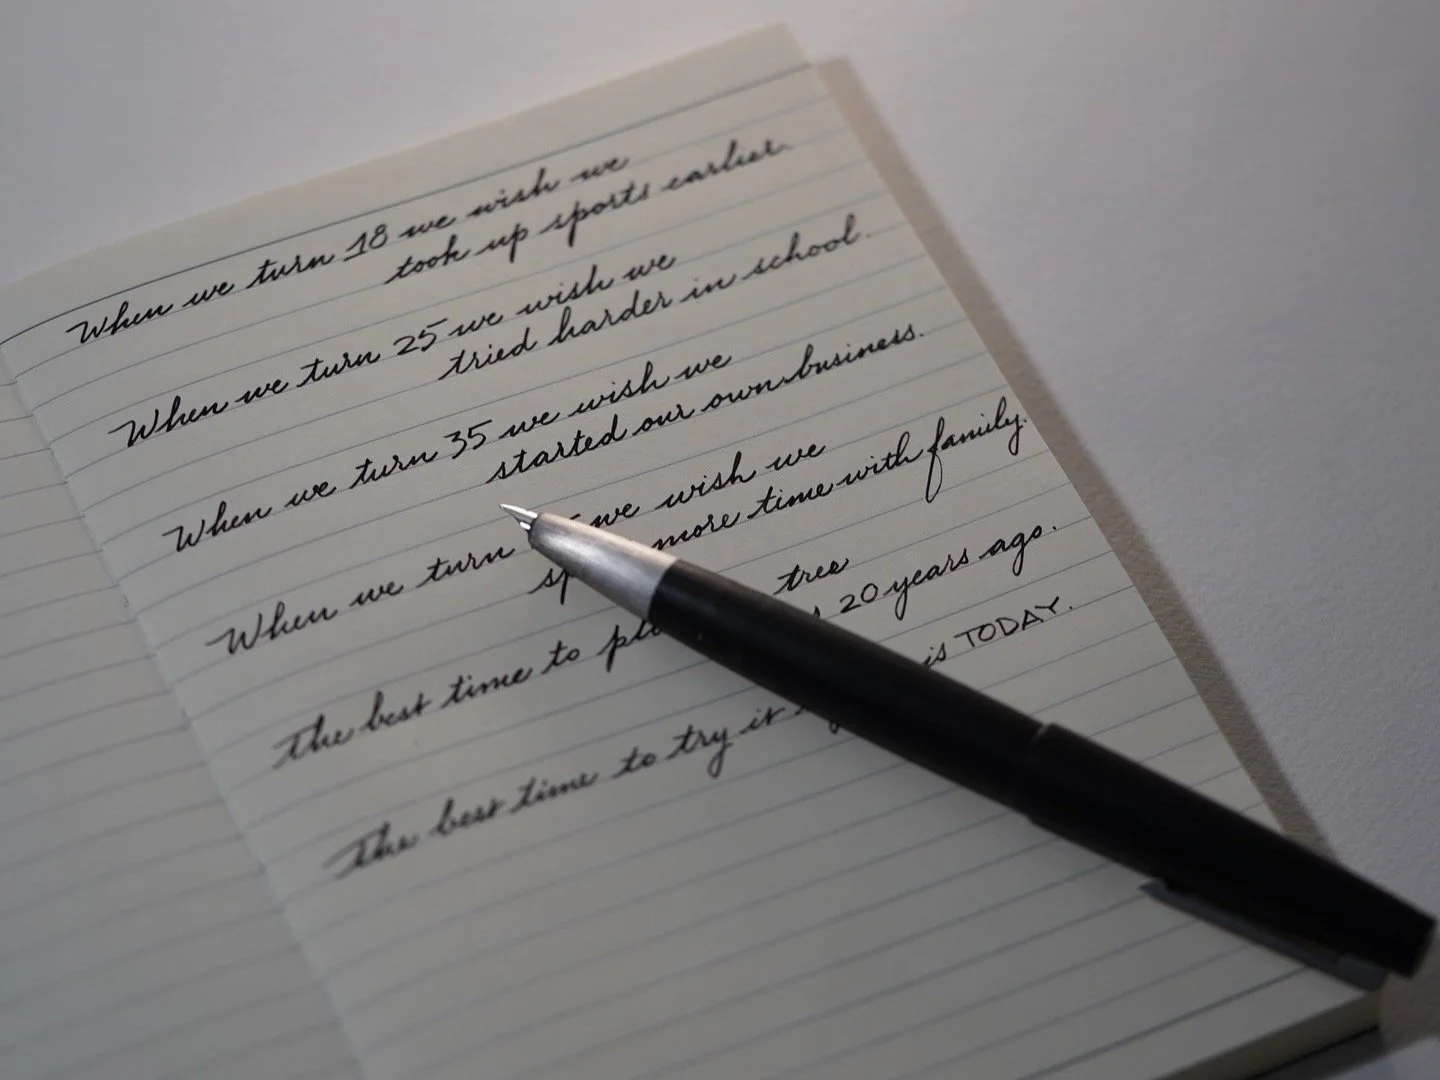 When we turn 18 we wish we
took up sports earlier.
When we turn 25 we wish we
tried harder in school.
When we turn 35 we wish we
started our own business.
When we turn we wish we
more time with family.
The best time to tree
20 years ago.
The best time to try it
is TODAY.